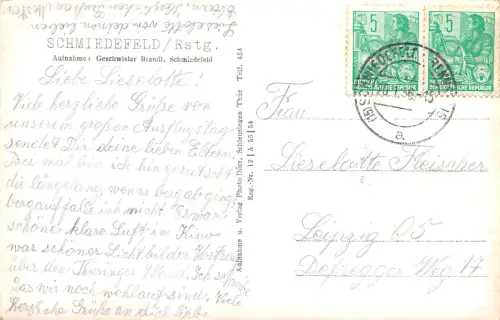 Lieselotte von deinen lieben
Eltern. Herzlichen
SCHMIEDEFELD/Rstg.
Aufnahme: Geschwister Brandt, Schmiedefeld
Liebe Lieselotte!
Viele herzliche Grüße von
unserem großen Ausflugstag
sendet Dir deine lieben Eltern.
Dies mal bin ich hin gerutscht
die längelang, wenns bergab ging
bergauf falle ich nicht. Es war
schöner klare Luft im Kino
war schöner Lichtbilder Vortrag
über den Thüringer Wald. Ich
das wir noch wohlauf sind. Viele
herzliche Grüße an dich
Aufnahme u. Verlag Photo Dörr, Schleusingen Thür Telf. 454
Reg.-Nr. 12 | A 55 | 54
5
5
DEUTSCHE DEMOKRATISCHE REPUBLIK
SCHMIEDEFELD
a
Frau
Lieselotte Fleischer
Leipzig O5
Defregger Weg 17